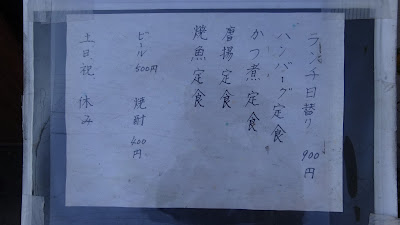 ランチ日替り 900円
ハンバーグ定食
かつ煮定食
唐揚定食
焼魚定食
ビール 500円 焼酎 400円
土日祝 休み